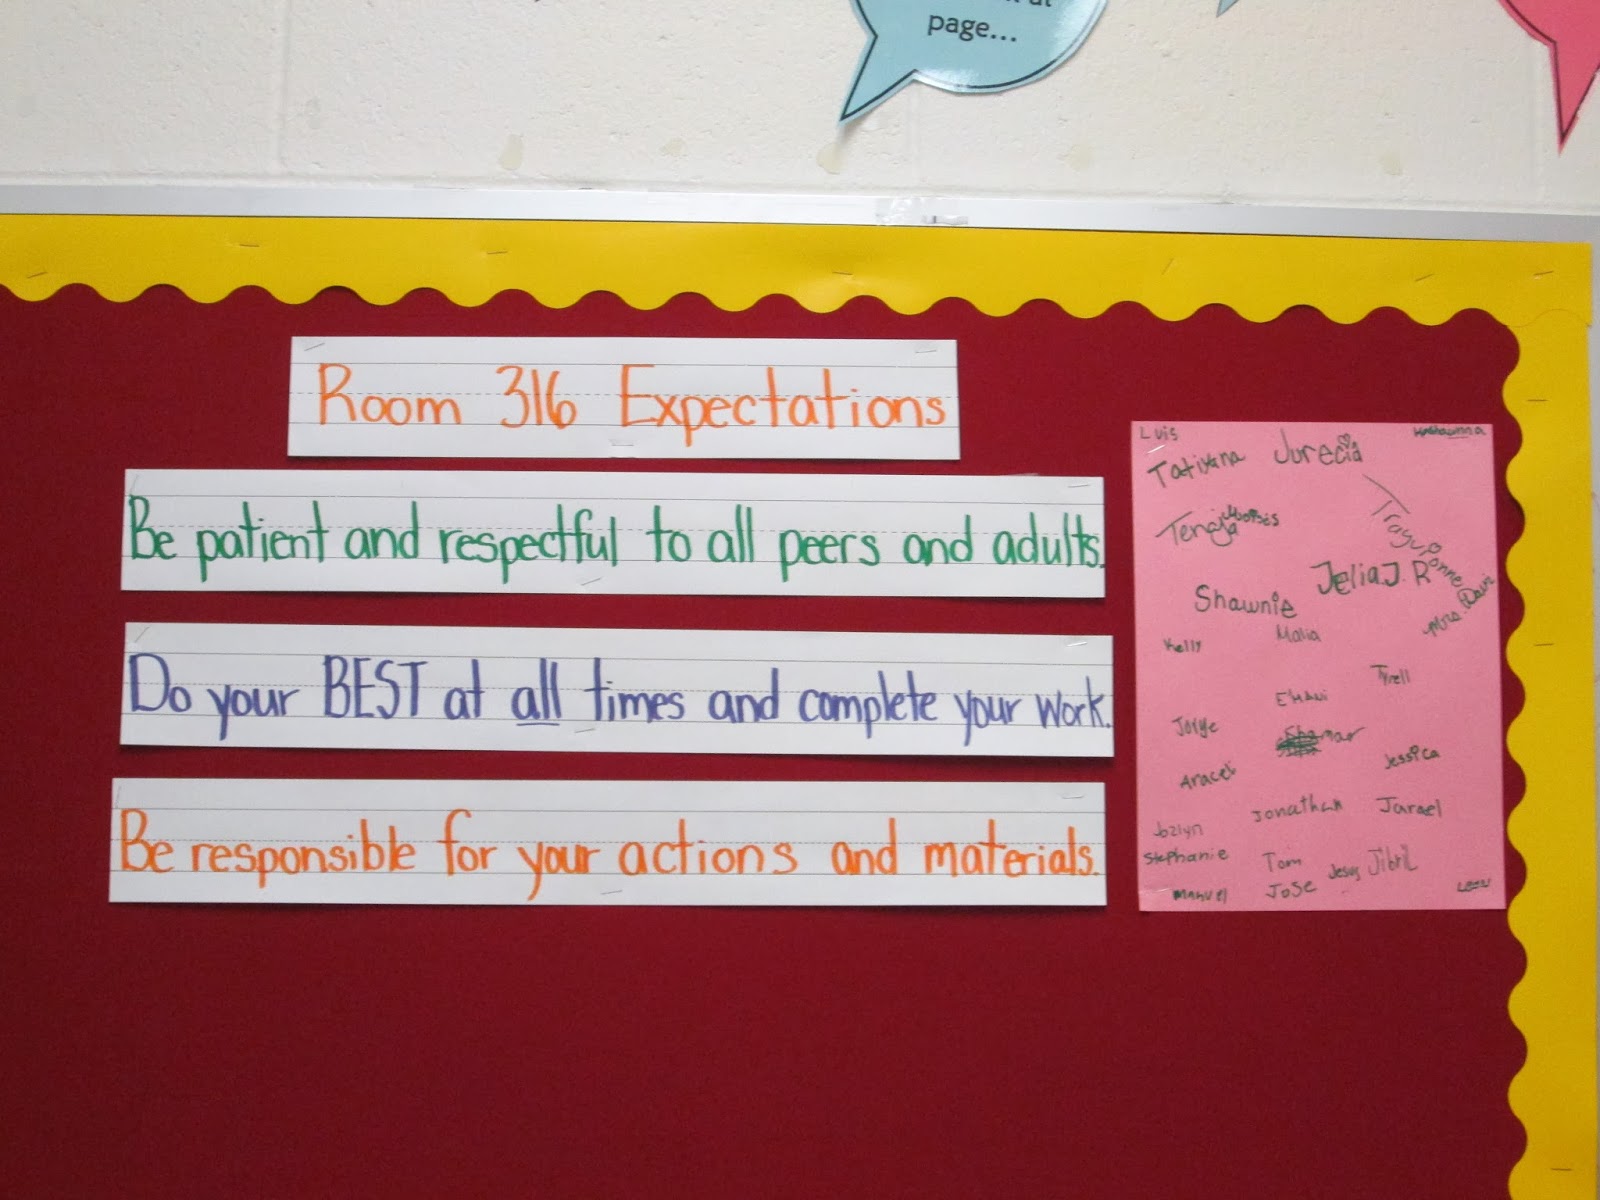 page...
Room 316 Expectations
Be patient and respectful to all peers and adults.
Do your BEST at all times and complete your work.
Be responsible for your actions and materials.
Luis
Tatiyana Jurecia
Shawnie
Jelia J.
Kelly Malia
Tyrell
Jorge
Jessica
Araceli
Jonathan Jarael
Jozlyn
Stephanie Tom Jesus Jibril
Manuel Jose